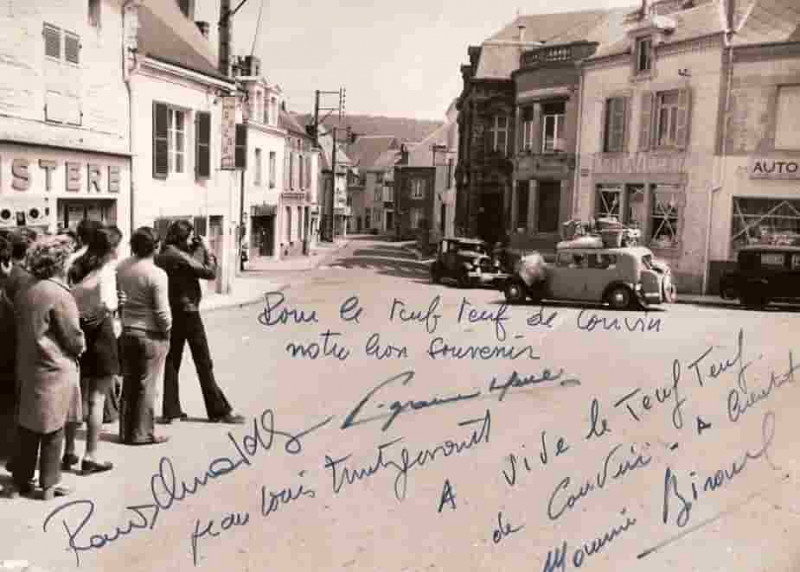 STERE
AUTO
Pour le teuf teuf de Couvin
notre bon souvenir
Jean Louis Trintignant
A Vive le Teuf Teuf
de Couvin - A bientôt
Maurice Biraud